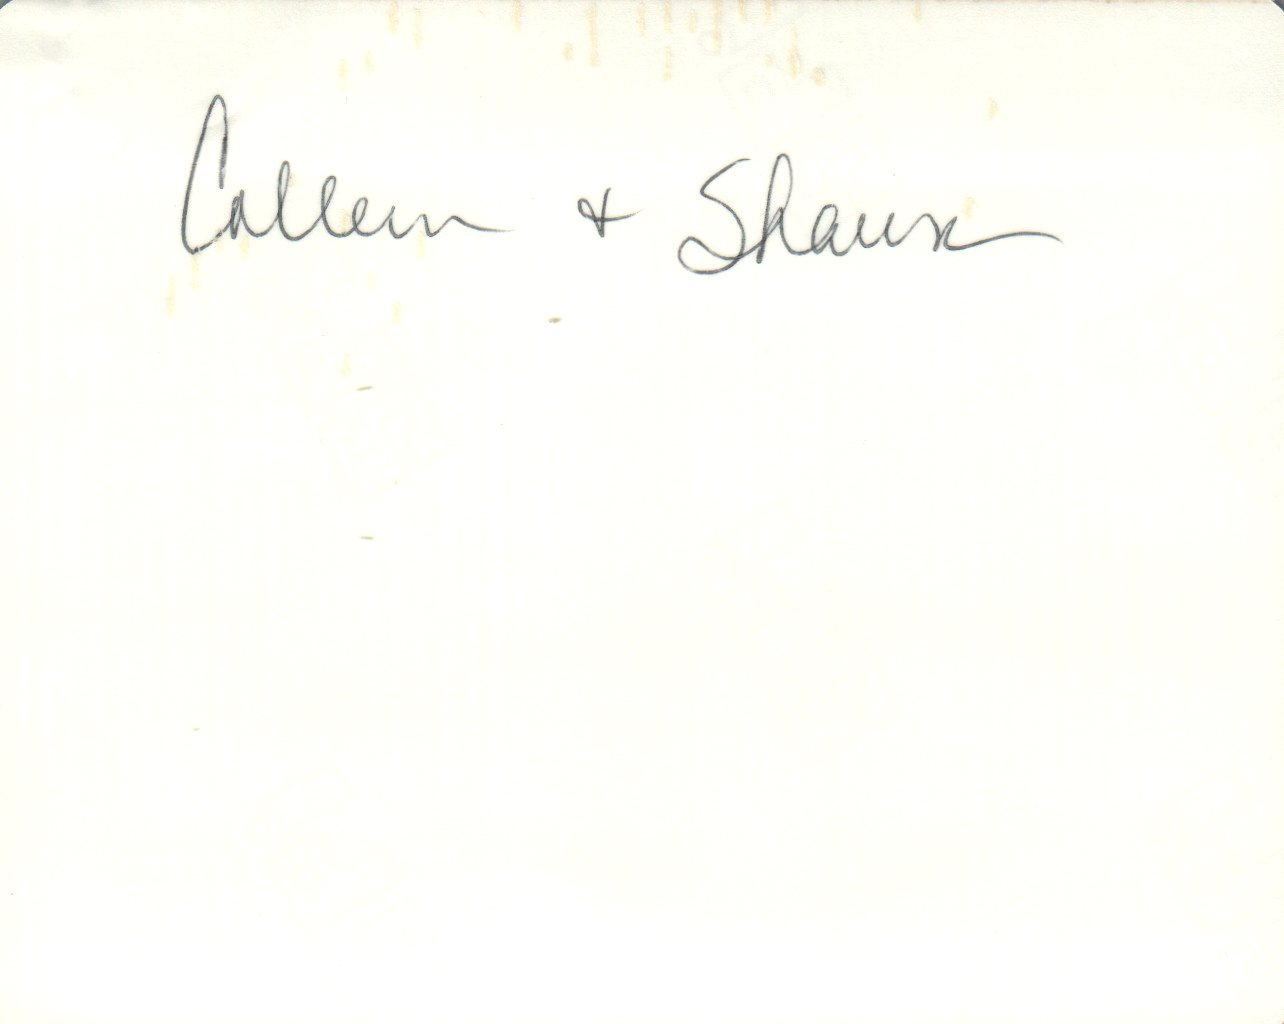 Colleen & Shawn